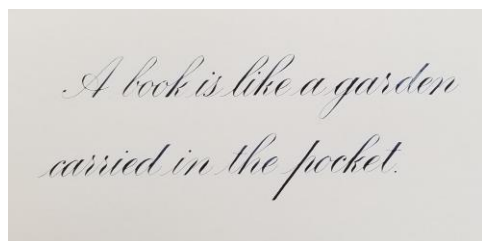 A book is like a garden
carried in the pocket.